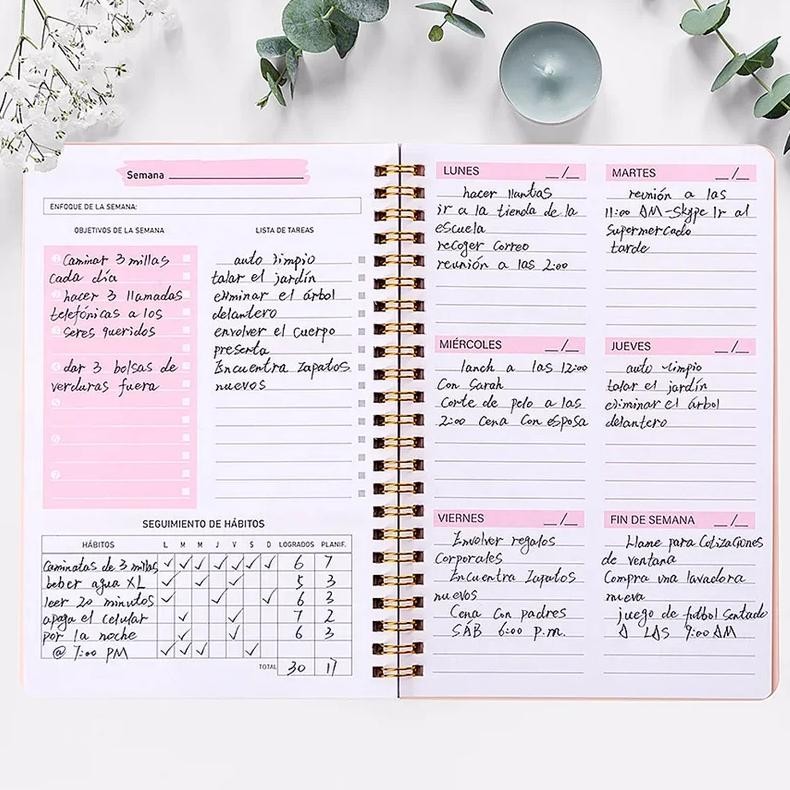 Semana
ENFOQUE DE LA SEMANA:
OBJETIVOS DE LA SEMANA
Caminar 3 millas
cada día
hacer 3 llamadas
telefónicas a los
seres queridos
dar 3 bolsas de
verduras fuera
LISTA DE TAREAS
auto limpio
talar el jardín
eliminar el árbol
delantero
envolver el cuerpo
presenta
Encuentra Zapatos
nuevos
SEGUIMIENTO DE HÁBITOS
HÁBITOS L M M J V S D LOGRADOS PLANIF.
Caminatas de 3 millas 6 7
beber agua XL 5 3
leer 20 minutos 6 3
apaga el celular 7 2
por la noche 6 3
@ 7:00 PM
TOTAL 30 17
LUNES _/_
hacer llantas
ir a la tienda de la
escuela
recoger correo
reunión a las 2:00
MARTES _/_
reunión a las
11:00 AM-Skype Ir al
supermercado
tarde
MIÉRCOLES _/_
lanch a las 12:00
Con Sarah
Corte de pelo a las
2:00 Cena Con esposa
JUEVES _/_
auto limpio
talar el jardín
eliminar el árbol
delantero
VIERNES _/_
Envolver regalos
Corporales
Encuentra Zapatos
nuevos
Cena Con padres
SÁB 6:00 p.m.
FIN DE SEMANA _/_
Llame para Cotizaciones
de ventana
Compra una lavadora
nueva
juego de futbol Sentado
A LAS 9:00 AM